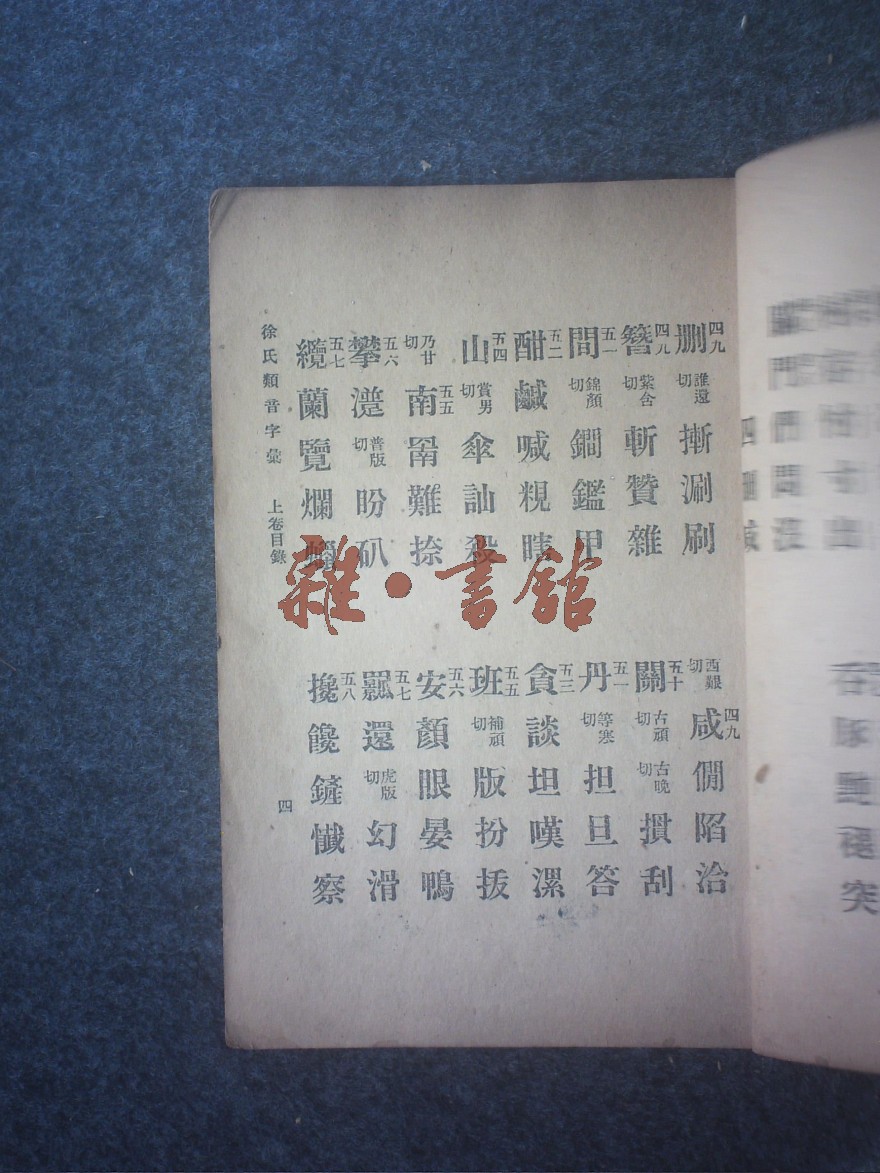 四九
刪 誰還切 摲 涮 刷
四九
簪 紫含切 斬 贊 雜
五一
間 錦顏切 鐧 鑑 甲
五二
酣 鹹 喊 睍 瞎
五四
山 賞男切 傘 訕 殺
乃甘切 五五
南 罱 難 捺
五六
攀 普版切 盼
五七
纜 蘭 覽 爛
西艱切 四九
咸 僩 陷 洽
五十
關 古頑切 古晚切 摜 刮
五一
丹 等寒切 担 旦 答
五三
貪 談 坦 嘆 漯
五五
班 補頑切 版 扮 拔
五六
安 顏 眼 晏 鴨
五七
還 虎版切 幻 滑
五八
攙 饞 鏟 懺 察
徐氏類音字彙 上卷目錄 四
雜·書館